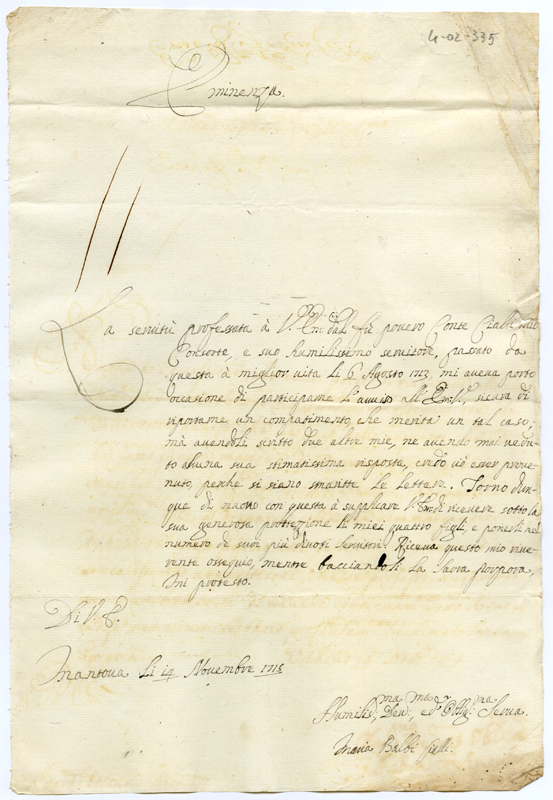 4-02-335
Eminenza.
La servitù professata à V. Em. dal fù povero Conte Cialli mio
Consorte, e suo humilissimo servitore, passato da
questa à miglior vita li 6 Agosto 1713, mi aveva porto
ocasione di participarne l'auuiso all' Em. V., sicura di
riportarne un compatimento, che merita un tal caso;
mà avendoli scritto due altre mie, ne avendo mai vedu-
to alcuna sua stimatissima risposta, credo ciò esser prove-
nuto, perche si siano smarite le lettere. Torno dun-
que di nuovo con questa à supplicare V. Em. di ricevere sotto la
sua generosa protterzione li miei quattro figli, e ponerli nel
numero di suoi più divoti servitori. Riceva questo mio rive-
rente ossequio, mentre bacciandoli la Sacra porpora,
mi protesto.
Di V. E.
Mantova li 14 Novembre 1715
Humilis.ma Dev.ma, ed Obblig.ma Serva.
Maria Balbi Cialli.